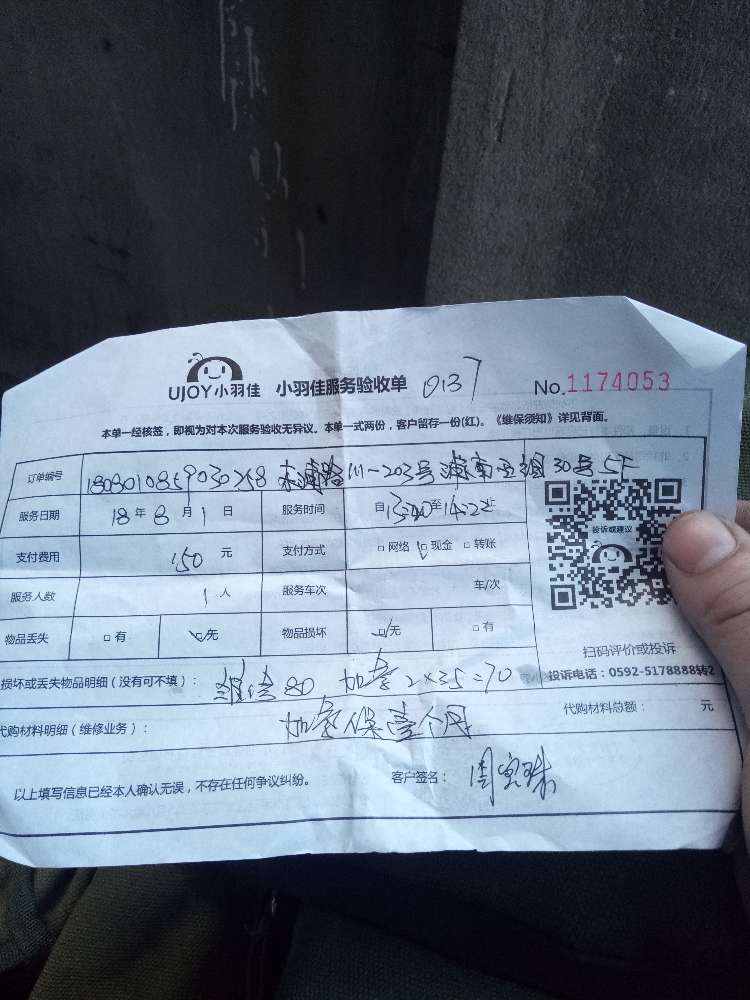 UJOY小羽佳 小羽佳服务验收单 0137 No.1174053
本单一经核签，即视为对本次服务验收无异议。本单一式两份，客户留存一份(红)。《维保须知》详见背面。
订单编号 1808010859030358 111-203号 30号 5F
服务日期 18年8月1日 服务时间 自13:40至14:22止
支付费用 150元 支付方式 □网络 □现金 □转账
投诉或建议
服务人数 1人 服务车次 车/次
物品丢失 □有 □无 物品损坏 □无 □有
扫码评价或投诉
损坏或丢失物品明细（没有可不填）： 80 加 2×35=70
投诉电话：0592-5178888转2
代购材料明细（维修业务）： 加 保壹个月 代购材料总额： 元
以上填写信息已经本人确认无误，不存在任何争议纠纷。 客户签名： 周宝珠